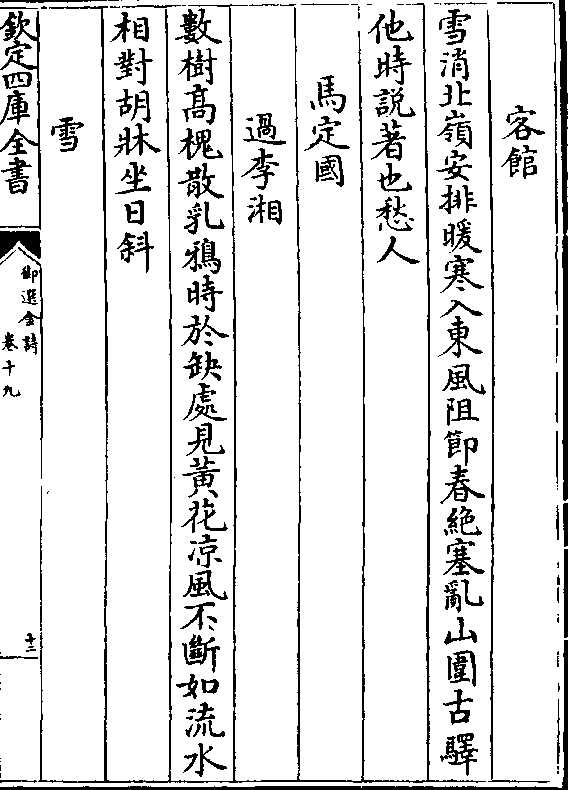 客館
雪消北嶺安排暖寒入東風阻節春絶塞亂山圍古驛
他時説著也愁人
馬定國
過李湘
數樹髙槐散乳鴉時於缺處見黃花凉風不斷如流水
相對胡牀坐日斜
雪
欽定四庫全書
御選金詩
卷十九
十二